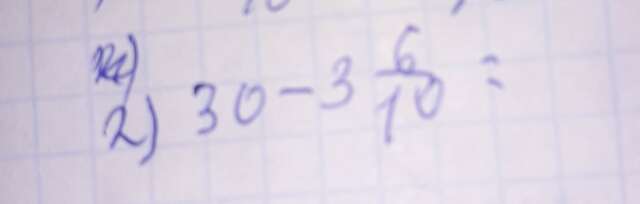 2) 30 - 3 6/10 =